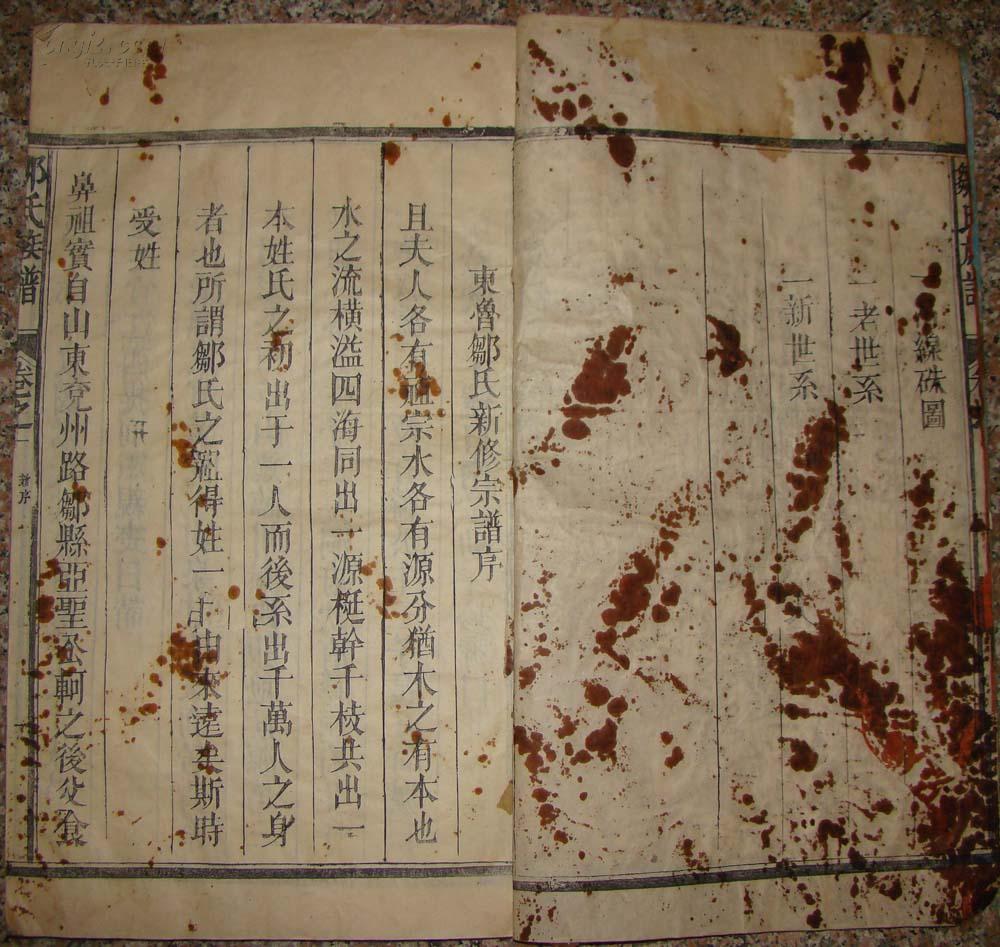 鄒氏族譜
一線硃圖
一老世系
一新世系
東魯鄒氏新修宗譜序
且夫人各有祖宗水各有源分猶木之有本也
水之流橫溢四海同出一源梃幹千枝共出一
本姓氏之初出于一人而後系出千萬人之身
者也所謂鄒氏之 得姓一 由來遠矣斯時
受姓
鼻祖實自山東兗州路鄒縣亞聖公軻之後 食
鄒氏族譜
卷之一
新序